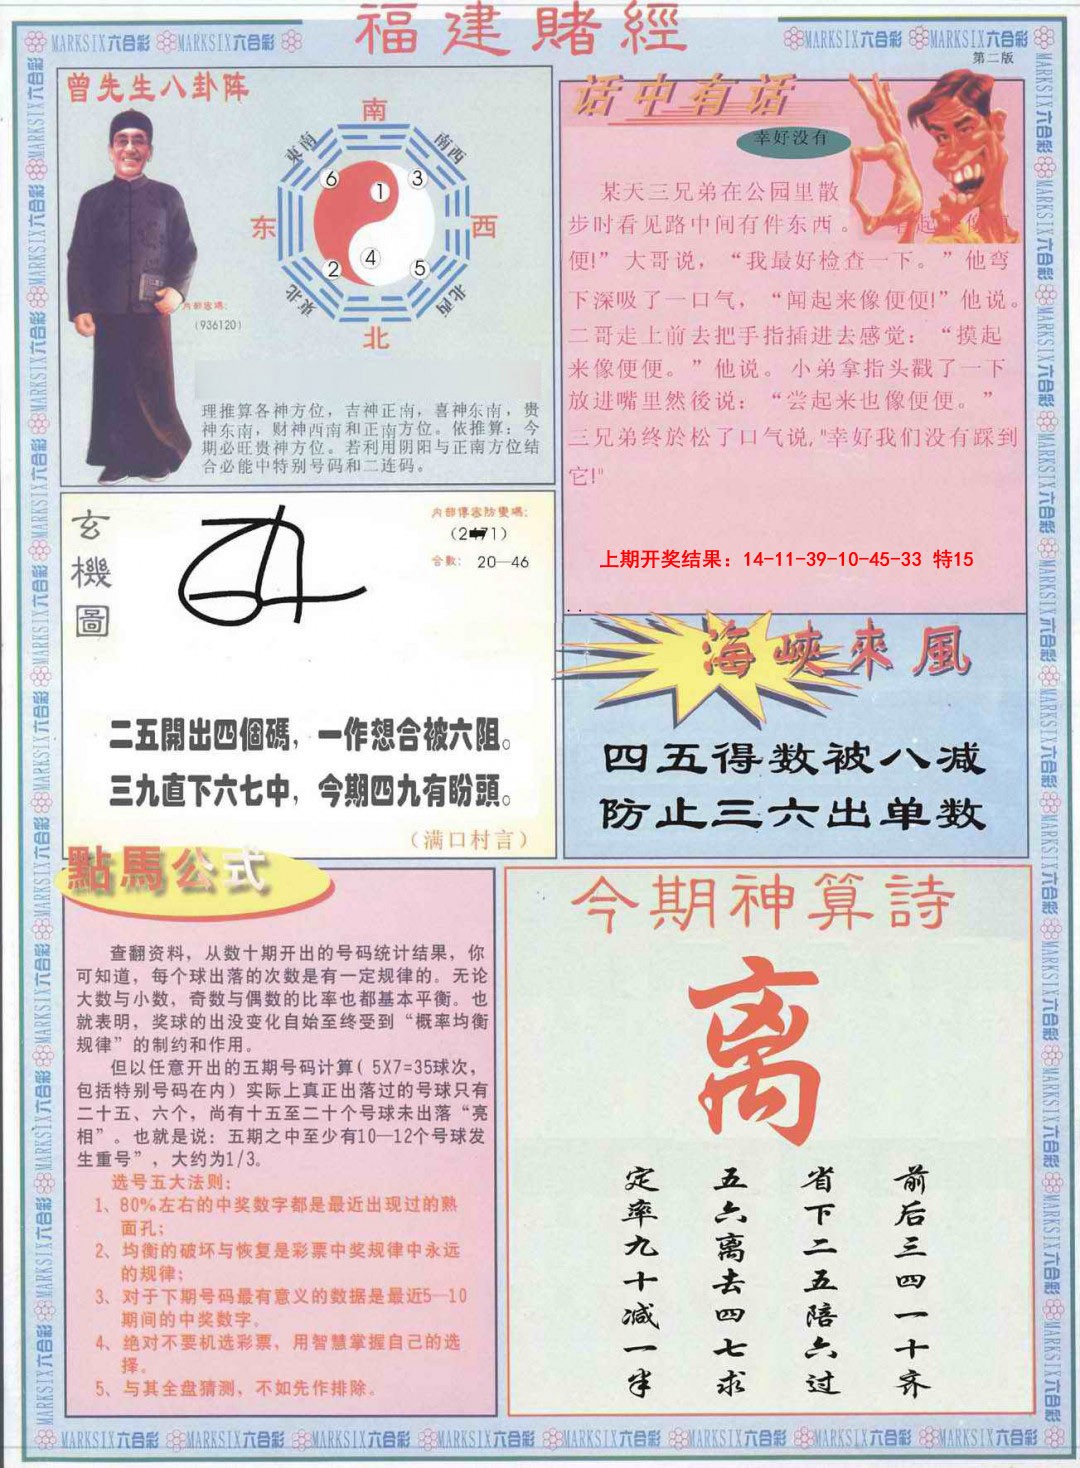 福建賭經
MARKSIX六合彩 MARKSIX六合彩
MARKSIX六合彩 MARKSIX六合彩
第二版
曾先生八卦阵
南
東南
南西
6
1
3
东
西
2
4
5
東北
北西
北
内部密碼:
(936120)
理推算各神方位，吉神正南，喜神东南，贵
神东南，财神西南和正南方位。依推算：今
期必旺贵神方位。若利用阴阳与正南方位结
合必能中特别号码和二连码。
话中有话
幸好没有
某天三兄弟在公园里散
步时看见路中间有件东西。
便!” 大哥说，“我最好检查一下。”他弯
下深吸了一口气，“闻起来像便便!”他说。
二哥走上前去把手指插进去感觉：“摸起
来像便便。”他说。小弟拿指头戳了一下
放进嘴里然後说：“尝起来也像便便。”
三兄弟终於松了口气说,"幸好我们没有踩到
它!"
上期开奖结果：14-11-39-10-45-33 特15
玄機圖
内部傳密防變碼:
合數: 20—46
二五開出四個碼，一作想合被六阻。
三九直下六七中，今期四九有盼頭。
（满口村言）
海峽來風
四五得数被八减
防止三六出单数
點馬公式
查翻资料，从数十期开出的号码统计结果，你
可知道，每个球出落的次数是有一定规律的。无论
大数与小数，奇数与偶数的比率也都基本平衡。也
就表明，奖球的出没变化自始至终受到“概率均衡
规律”的制约和作用。
但以任意开出的五期号码计算( 5X7=35球次，
包括特别号码在内）实际上真正出落过的号球只有
二十五、六个，尚有十五至二十个号球未出落“亮
相”。也就是说：五期之中至少有10—12个号球发
生重号”，大约为1/3。
选号五大法则：
1、80%左右的中奖数字都是最近出现过的熟
面孔；
2、均衡的破坏与恢复是彩票中奖规律中永远
的规律；
3、对于下期号码最有意义的数据是最近5—10
期间的中奖数字。
4、绝对不要机选彩票，用智慧掌握自己的选
择。
5、与其全盘猜测，不如先作排除。
今期神算詩
离
前后三四一十齐
省下二五陪六过
五六离去四七求
定率九十减一半
MARKSIX六合彩 MARKSIX六合彩 MARKSIX六合彩 MARKSIX六合彩 MARKSIX六合彩 MARKSIX六合彩 MARKSIX六合彩 MARKSIX六合彩